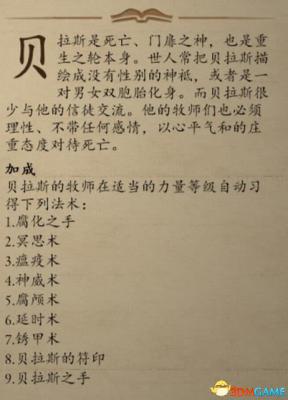 贝拉斯是死亡、门扉之神，也是重
生之轮本身。世人常把贝拉斯描
绘成没有性别的神祗，或者是一
对男女双胞胎化身。而贝拉斯很
少与他的信徒交流。他的牧师们也必须
理性、不带任何感情，以心平气和的庄
重态度对待死亡。
加成
贝拉斯的牧师在适当的力量等级自动习
得下列法术：
1.腐化之手
2.冥思术
3.瘟疫术
4.神威术
5.腐颅术
6.延时术
7.锈甲术
8.贝拉斯的符印
9.贝拉斯之手
3DMGAME